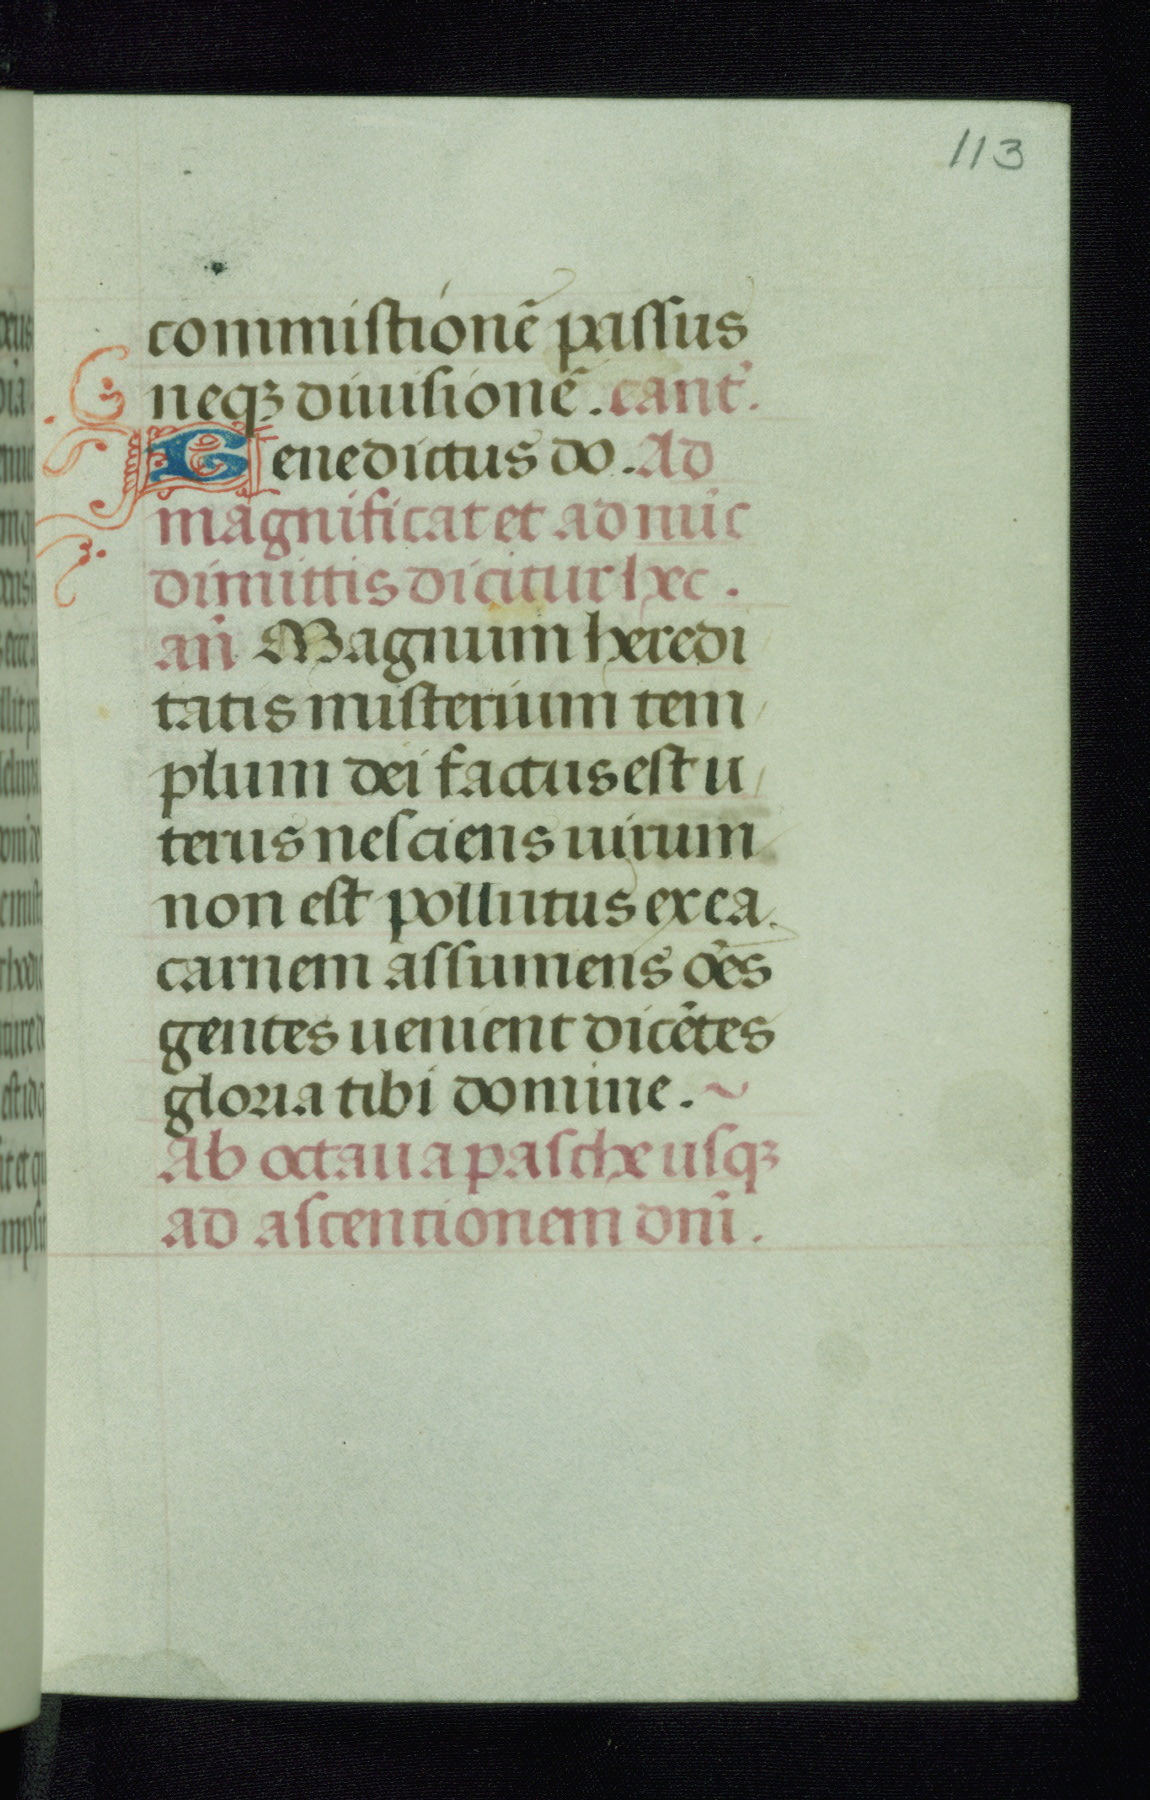 113
commistionē passus
neqꝫ diuisionē. cant̄.
Benedictus do. Ad
magnificat et ad nūc
dimittis dicitur hec.
an̄ Magnum heredi
tatis misterium tem
plum dei factus est u
terus nesciens uirum
non est pollutus ex ea
carnem assumens oēs
gentes uenient dicētes
gloria tibi domine.
Ab octaua pasche usqꝫ
ad ascentionem dn̄i.